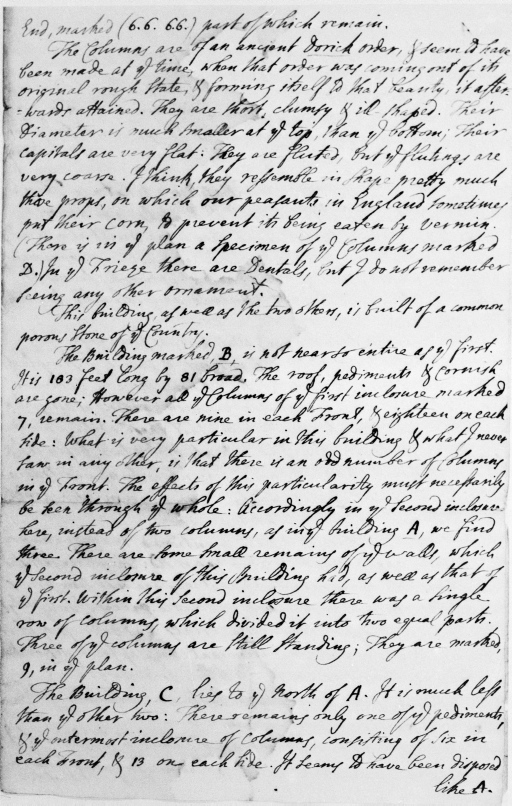 End, marked (6. 6. 66.) part of which remain.
The Columns are of an ancient Dorick order, & seem to have
been made at ye time, when that order was coming out of its
original rough state, & forming itself to that beauty, it after-
-wards attained. They are short, clumsy & ill shaped. Their
Diameter is much smaller at ye top, than ye bottom; Their
Capitals are very flat: They are fluted, but ye flutings are
very coarse. I think, they ressemble in shape pretty much
those props, on which our peasants in England sometimes
put their corn, to prevent its being eaten by vermin.
(There is in ye plan a specimen of ye Columns marked
D.) In ye Friege there are Dentals, but I do not remember
seeing any other ornament.
This building, as well as the two others, is built of a common
porous stone of ye Country.
The Building marked, B, is not near so entire as ye first.
It is 183 feet long by 81 broad. The roof, pediments & Cornish
are gone; However all ye Columns of ye first inclosure marked
7, remain. There are nine in each Front, & eighteen on each
side: What is very particular in this building & what I never
saw in any other, is that there is an odd number of Columns
in ye Front. The effects of this particularity must necessarily
be seen through ye whole: Accordingly in ye second inclosure
here, instead of two columns, as in ye building A, we find
three. There are some small remains of ye walls, which
ye second inclosure of this Building had, as well as that of
ye first. Within this second inclosure there was a single
row of columns, which divided it into two equal parts.
Three of ye columns are still standing; They are marked,
9, in ye plan.
The Building, C, lies to ye North of A. It is much less
than ye other two: There remains only one of ye pediments,
& ye outermost inclosure of Columns, consisting of six in
each Front, & 13 on each side. It seems to have been disposed
like A.